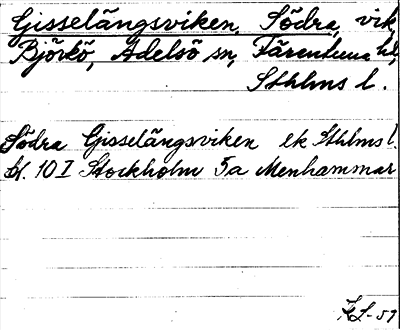 Gisselängsviken, Södra, vik,
Björkö, Adelsö sn, Färentuna hd,
Sthlms l.
Södra Gisselängsviken ek Sthlms l.
bl. 10 I Stockholm 5a Menhammar